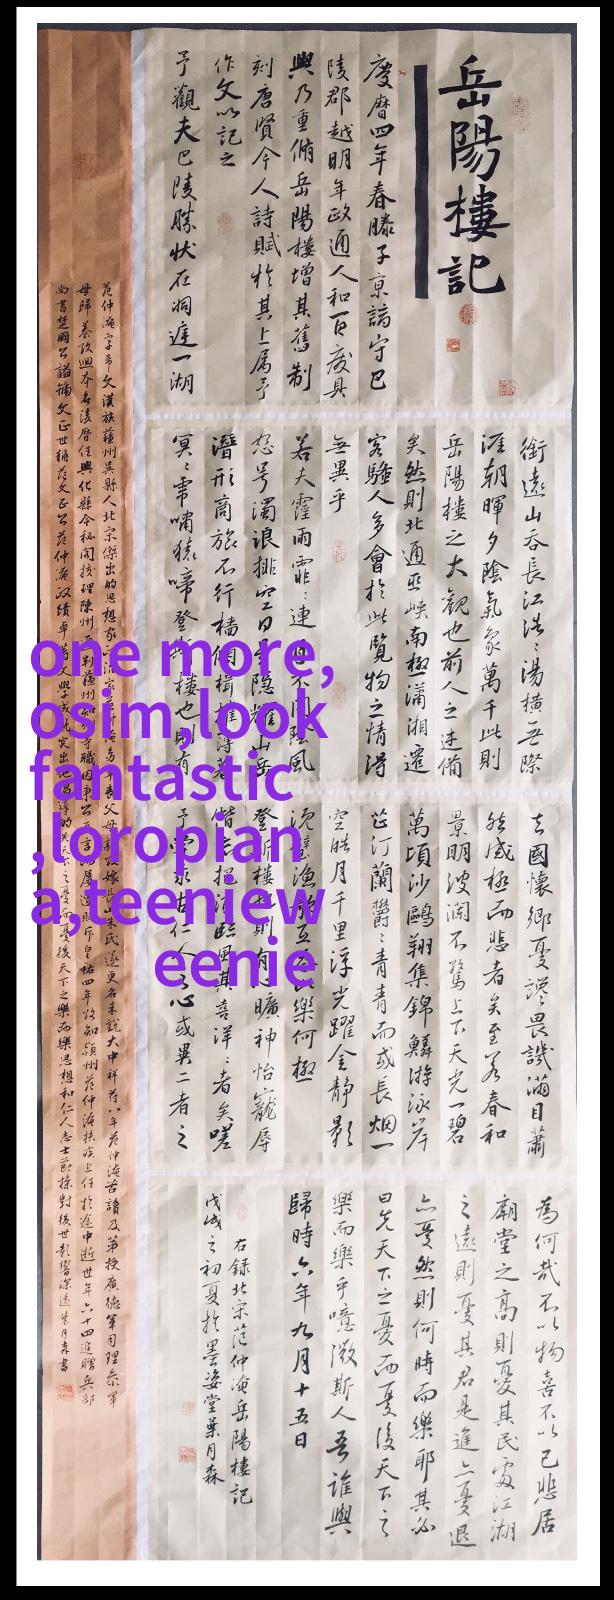 岳陽樓記
慶曆四年春滕子京謫守巴
陵郡越明年政通人和百廢具
興乃重脩岳陽樓增其舊制
刻唐賢今人詩賦於其上屬予
作文以記之
予觀夫巴陵勝狀在洞庭一湖
銜遠山吞長江浩〻湯橫無際
涯朝暉夕陰氣象萬千此則
岳陽樓之大觀也前人之述備
矣然則北通巫峽南極瀟湘遷
客騷人多會於此覽物之情得
無異乎
若夫霪雨霏〻連月不開陰風
怒号濁浪排空日星隱耀山岳
潛形商旅不行檣傾楫摧薄暮
冥〻虎嘯猿啼登斯樓也則有
去國懷鄉憂讒畏譏滿目蕭
然感極而悲者矣至若春和
景明波瀾不驚上下天光一碧
萬頃沙鷗翔集錦鱗游泳岸
芷汀蘭鬱〻青青而或長烟一
空皓月千里浮光躍金静影
沉璧漁歌互答此樂何極
登斯樓也則有心曠神怡寵辱
偕忘把酒臨風其喜洋〻者矣嗟
予嘗求古仁人之心或異二者之
為何哉不以物喜不以己悲居
廟堂之高則憂其民處江湖
之遠則憂其君是進亦憂退
亦憂然則何時而樂耶其必
曰先天下之憂而憂後天下之
樂而樂乎噫微斯人吾誰與
歸時六年九月十五日
右録北宋范仲淹岳陽樓記
戊戌之初夏於墨姿堂葉月森
范仲淹字希文漢族蘇州吳縣人北宋傑出的思想家政治家范仲淹多年喪父母親改嫁長山朱氏遂更名朱說大中祥符八年范仲淹苦讀及第授廣德軍司理參軍
母歸養改回本名後曆任興化縣令秘閣校理陳州通判蘇州知州等職因秉公直言而屢遭貶斥皇祐四年改知潁州范仲淹扶疾上任於途中逝世年六十四追贈兵部
尚書楚國公謚號文正世稱范文正公范仲淹政績卓著文學成就突出他倡導的先天下之憂而憂後天下之樂而樂思想和仁人志士節操對後世影響深遠葉月森書
one more,
osim,look
fantastic
,loropian
a,teeniew
eenie